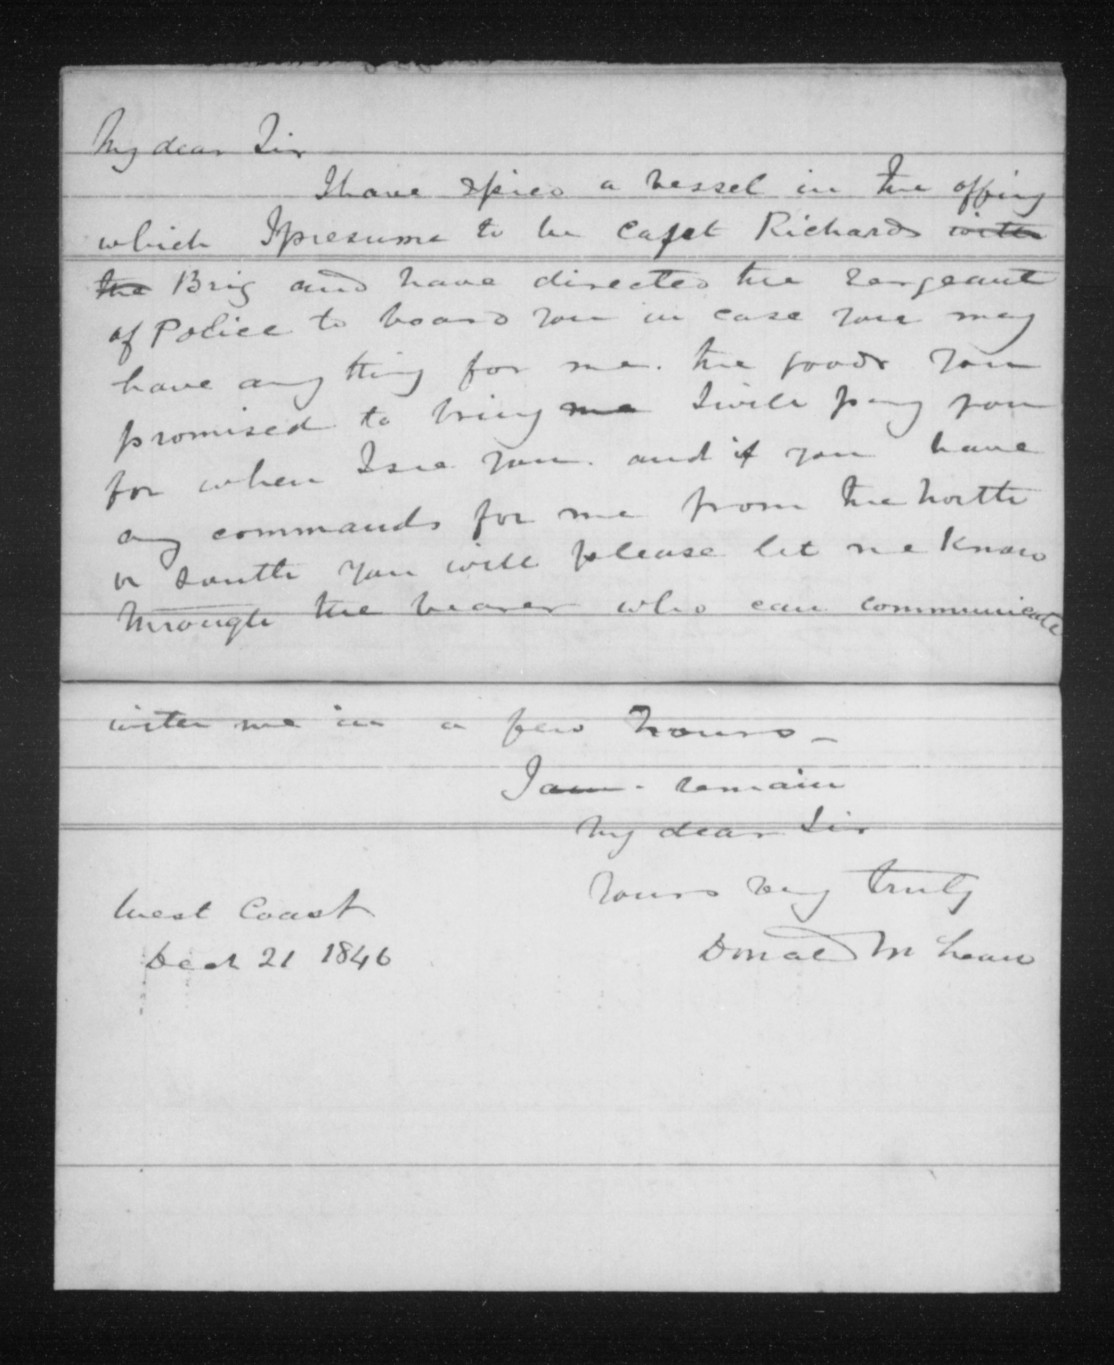 My dear Sir
I have spied a vessel in the offing
which I presume to be Capt Richards with
the Brig and have directed the Sergeant
of Police to board you in case you may
have any thing for me. the goods you
promised to bring me I will pay you
for when I see you. and if you have
any commands for me from the North
or South you will please let me know
through the bearer who can communicate
with me in a few hours_
I am. remain
My dear Sir
Yours very truly
West Coast
Donald McLean
Decr 21 1846